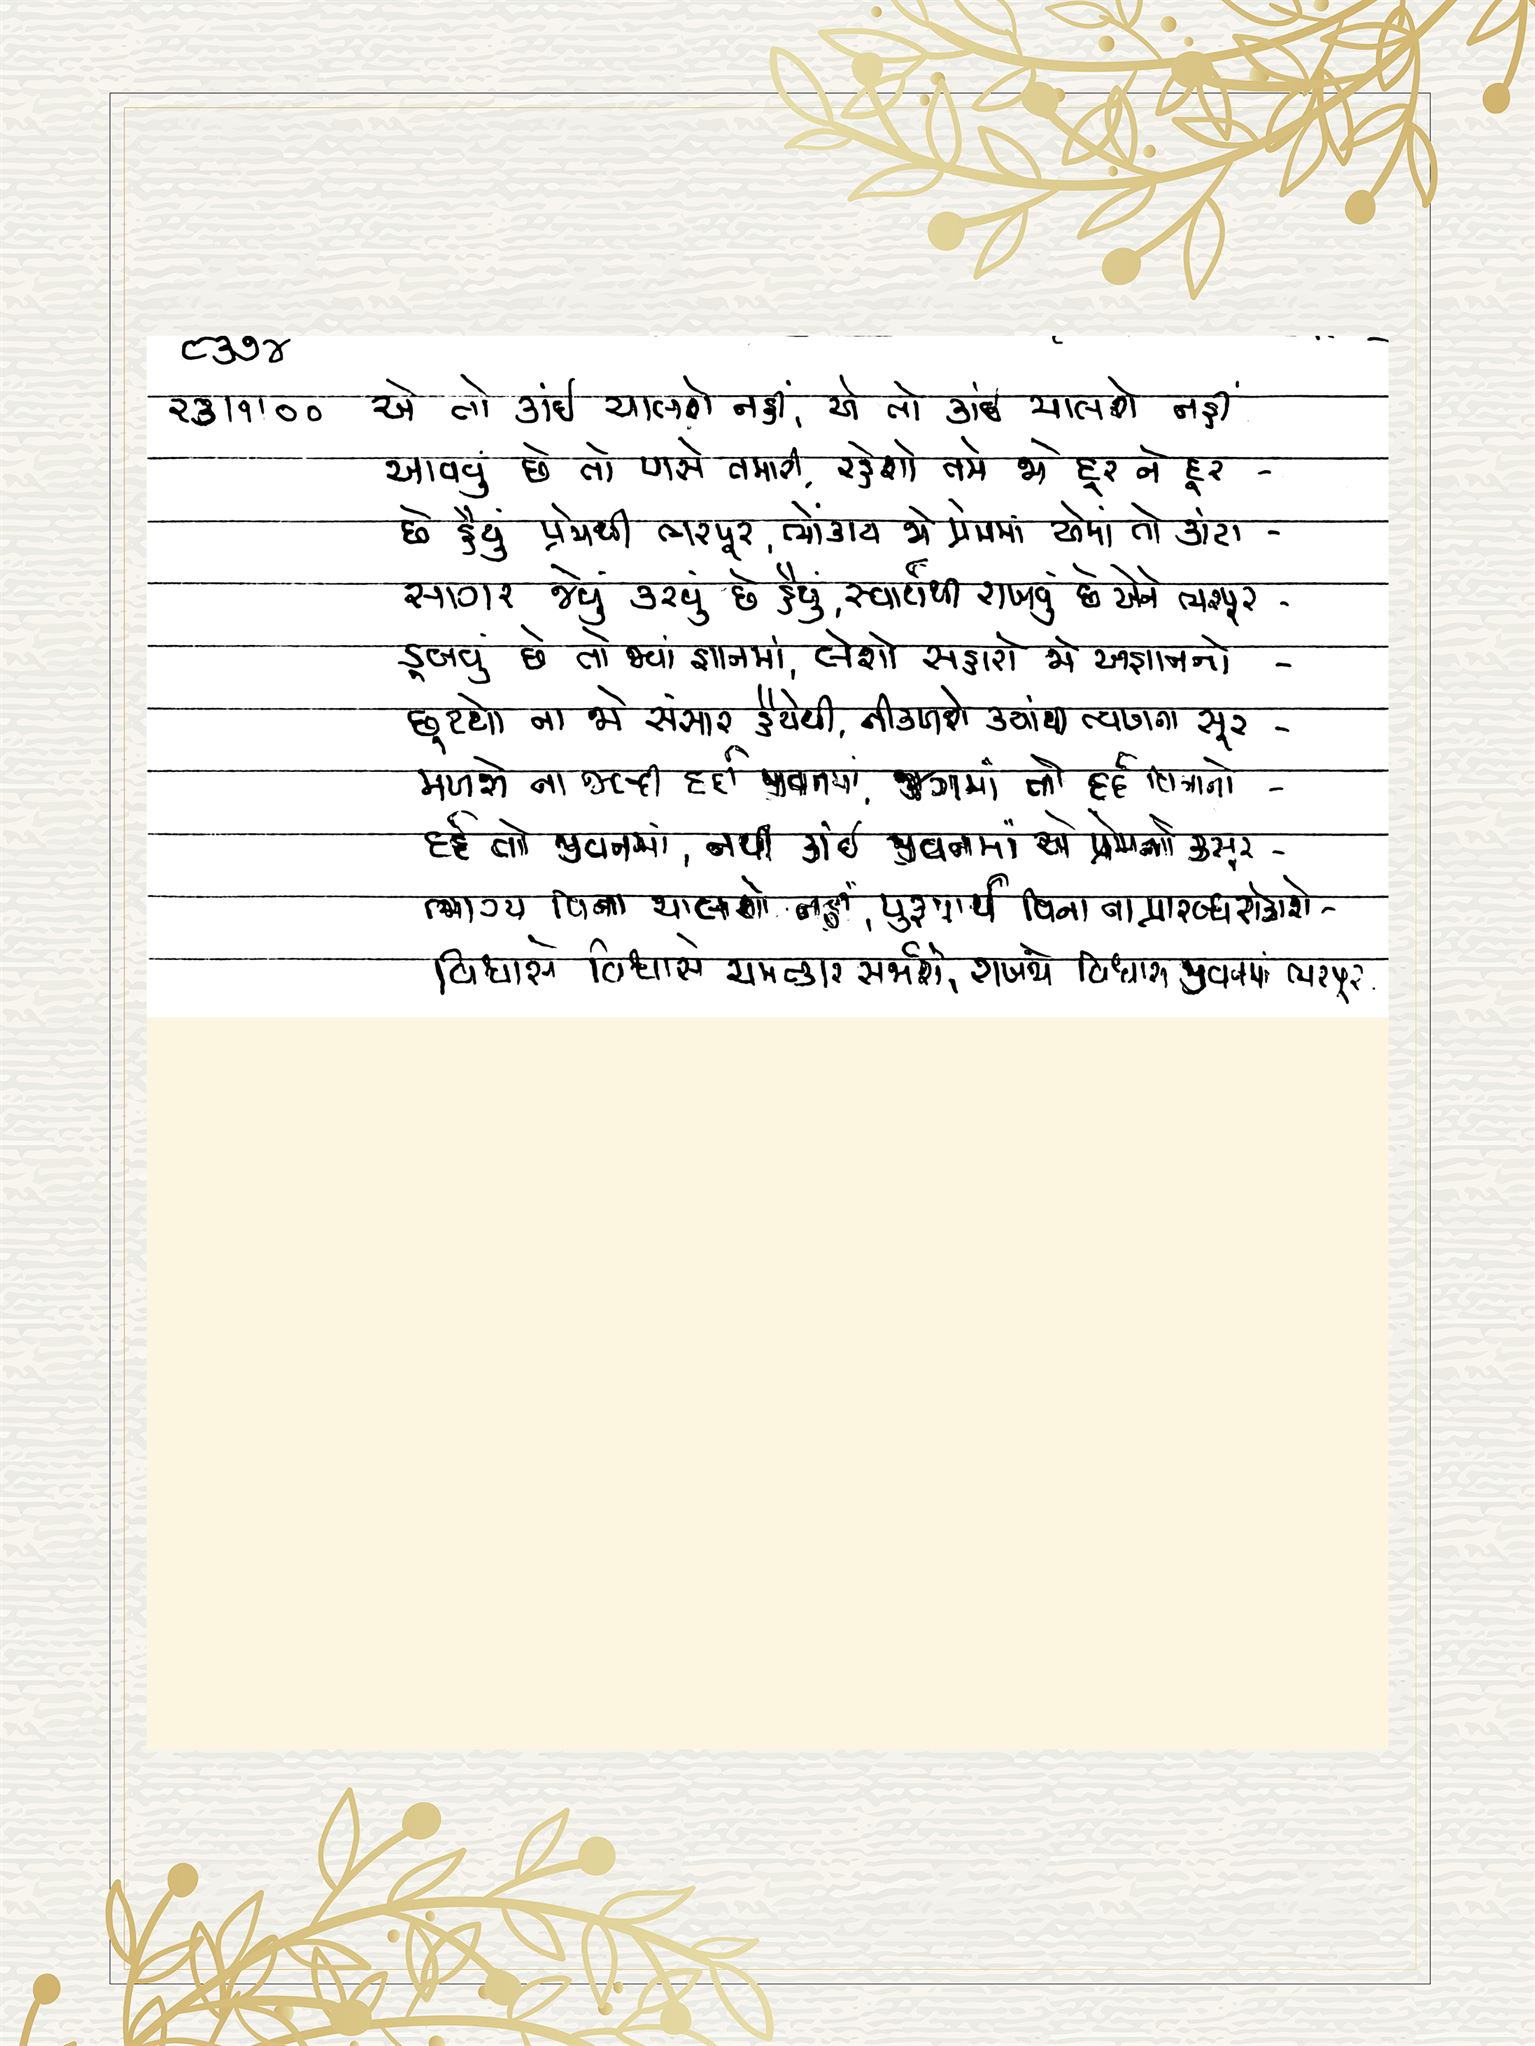 ૮૩૭૪
૨૩/૧/૦૦ એ તો કાંઈ ચાલશે નહીં, એ તો કાંઈ ચાલશે નહીં
આવવું છે તો પાસે તમારી, રહેશો તમે જો દૂર ને દૂર -
છે હૈયું પ્રેમથી ભરપૂર, ભોંકાય જો પ્રેમમાં એમાં તો કાંટા -
સાગર જેવું કરવું છે હૈયું, સ્વાર્થથી રાખવું છે એને ભરપૂર -
ડૂબવું છે તો જ્યાં જ્ઞાનમાં, લેશો સહારો જો અજ્ઞાનનો -
છૂટશે ના જો સંસાર હૈયેથી, નીકળશે ક્યાંથી ત્યાગના સૂર -
મળશે ના જલ્દી દર્દી જીવનમાં, જગમાં તો દર્દ વિનાનો -
દર્દ તો જીવનમાં, નથી કાંઈ જીવનમાં એ પ્રેમનો કસૂર -
ભાગ્ય વિના ચાલશે નહીં, પુરૂષાર્થ વિના ના પ્રારબ્ધ રોકાશે -
વિશ્વાસે વિશ્વાસે ચમત્કાર સર્જાશે, રાખજે વિશ્વાસ જીવનમાં ભરપૂર.